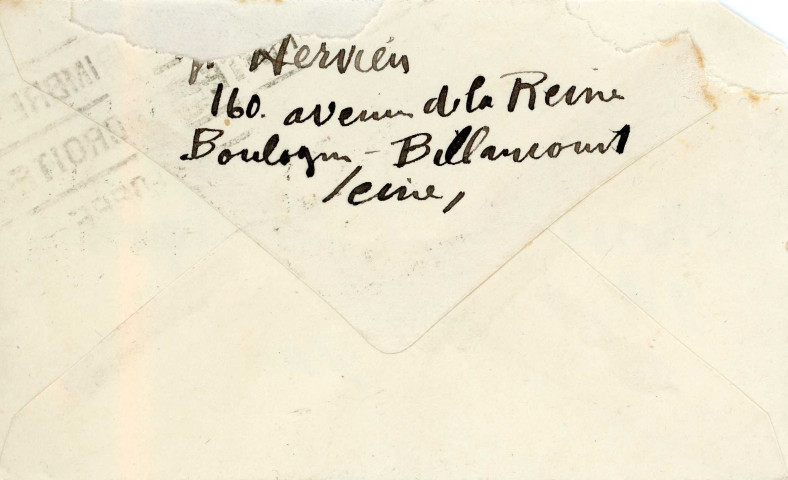 Hervieu
160. avenue de la Reine
Boulogne - Billancourt
Seine,
TIMBRE
DROIT